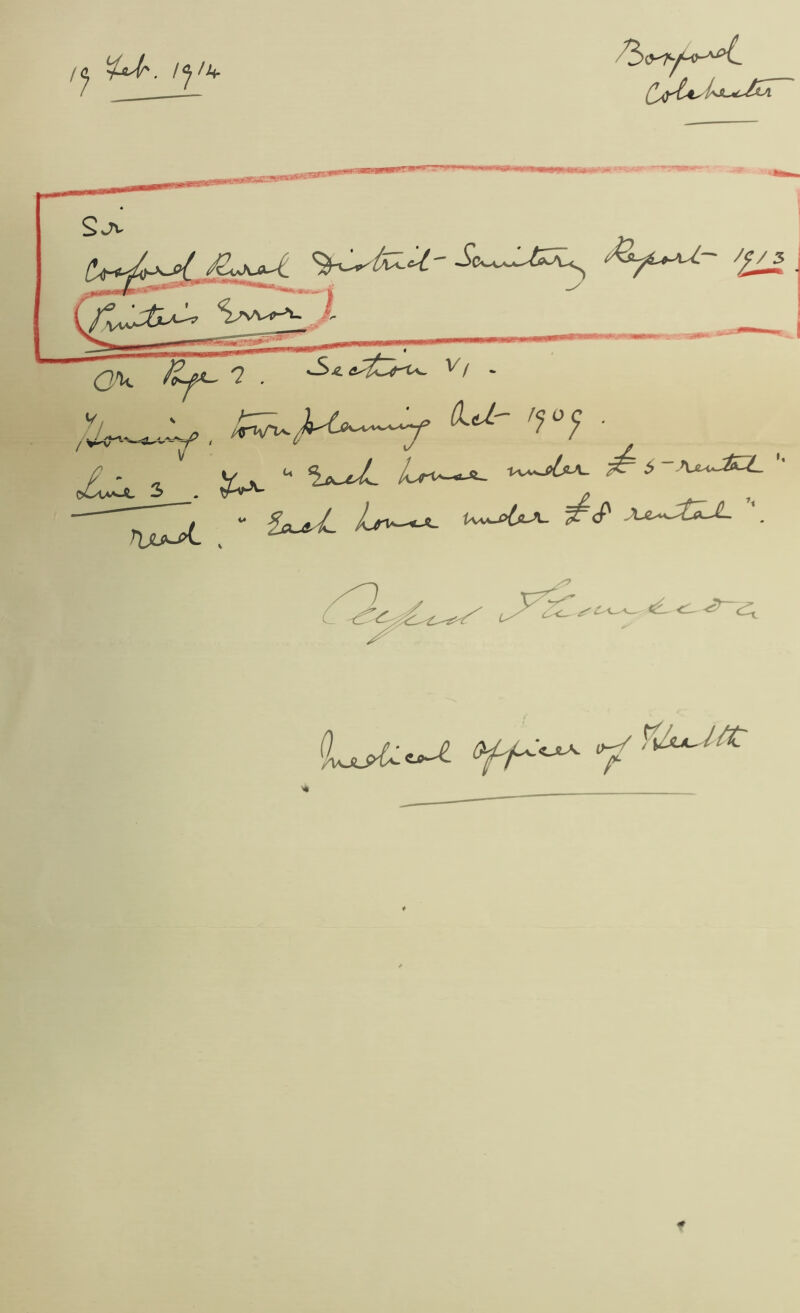 19 Feb. 1914
Boxford
Colchester
Sir
Cosford Rural District Sanitary Report 1913
(Printer's Error).
On Page 7. Section VI -
Housing, Town planning Act 1909.
Line 3. For "Each house under £5 - rental"
read, "Each house under £8 rental".
Medical Officer of Health